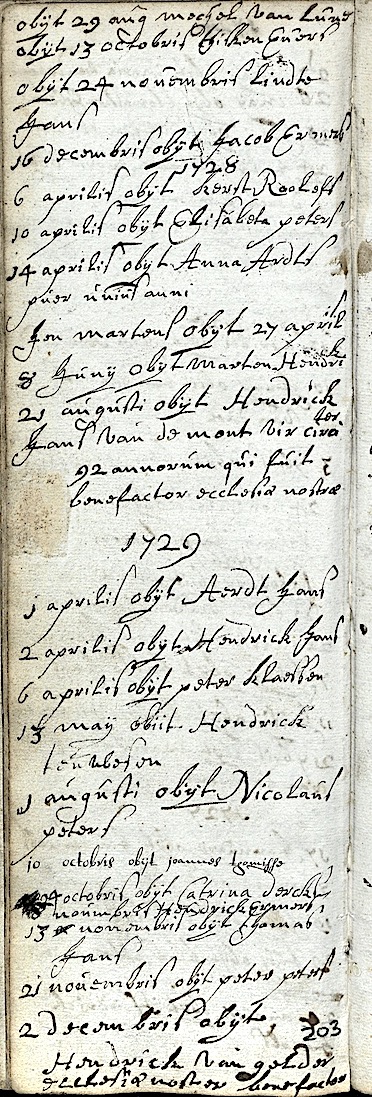 obijt 29 aug mechel van Lune
obijt 13 octobris Hilken Evers
obijt 24 novembris lindte
Jans
16 decembris obijt Jacob Ermers
1728
6 aprilis obijt Kerst Roeloffs
10 aprilis obijt Elisabeta peters
14 aprilis obijt Anna Ardts
puer unius anni
Jen martens obijt 27 april
8 Juny obijt Marten Hendri
21 augusti obijt Hendrick
Jans van de mont vir circi
ter
92 annorum qui fuit
benefactor ecclesiæ nostræ
1729
1 aprilis obijt Aerdt Jans
2 aprilis obijt Hendrick Jans
6 aprilis obijt peter Klaessen
13 maij obiit Hendrick
teunesen
1 augusti obijt Nicolaus
peters
10 octobris obijt joannes thomisse
octobris obijt Catrina dercks
novembris Hendrick Ermers
13 novembris obijt thomas
Jans
21 novembris obijt peter peters
2 decembris obijt 203
Hendrick van gelder
ecclesiæ noster benefactor